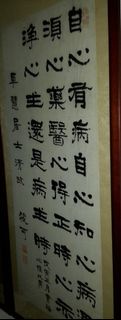 自心有病自心知心病還
須心藥醫心得正時心亦
淨心生還是病生時
慧居士清玩